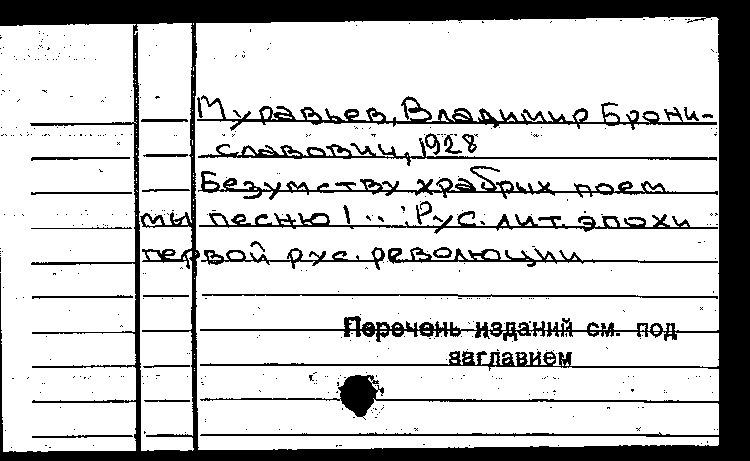 Муравьев, Владимир Брони-
славович, 1928
Безумству храбрых поем
мы песню!..: Рус. лит. эпохи
первой рус. революции
Перечень изданий см. под
заглавием